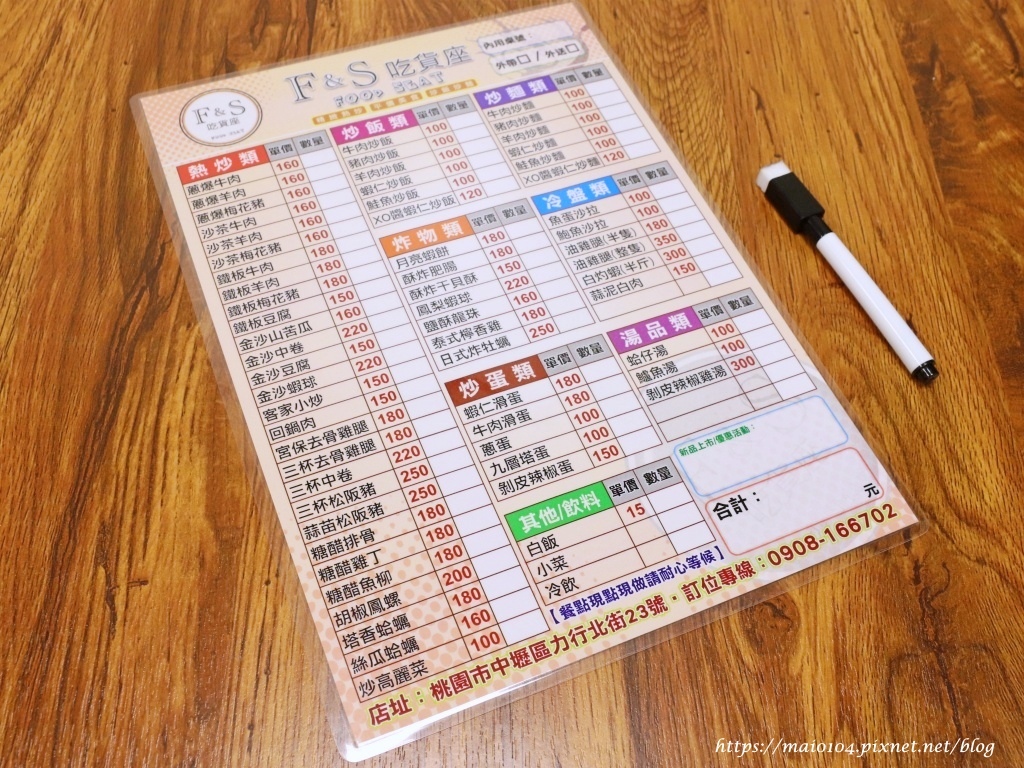 F&S 吃貨座
FOOD SEAT
內用桌號
外帶□ / 外送□
F&S
吃貨座
FOOD SEAT
熱炒類 單價 數量
蔥爆牛肉 160
蔥爆羊肉 160
蔥爆梅花豬 160
沙茶牛肉 160
沙茶羊肉 160
沙茶梅花豬 160
鐵板牛肉 180
鐵板羊肉 180
鐵板梅花豬 180
鐵板豆腐 150
金沙山苦瓜 160
金沙中卷 220
金沙豆腐 150
金沙蝦球 220
客家小炒 150
回鍋肉 150
宮保去骨雞腿 180
三杯去骨雞腿 180
三杯中卷 220
三杯松阪豬 250
蒜苗松阪豬 250
糖醋排骨 180
糖醋雞丁 180
糖醋魚柳 180
胡椒鳳螺 200
塔香蛤蠣 180
絲瓜蛤蠣 160
炒高麗菜 100
炒飯類 單價 數量
牛肉炒飯 100
豬肉炒飯 100
羊肉炒飯 100
蝦仁炒飯 100
鮭魚炒飯 100
XO醬蝦仁炒飯 120
炒麵類 單價 數量
牛肉炒麵 100
豬肉炒麵 100
羊肉炒麵 100
蝦仁炒麵 100
鮭魚炒麵 100
XO醬蝦仁炒麵 120
炸物類 單價 數量
月亮蝦餅 180
酥炸肥腸 180
酥炸干貝酥 150
鳳梨蝦球 220
鹽酥龍珠 160
泰式檸香雞 180
日式炸牡蠣 250
冷盤類 單價 數量
魚蛋沙拉 100
鮑魚沙拉 100
油雞腿(半隻) 180
油雞腿(整隻) 350
白灼蝦(半斤) 300
蒜泥白肉 150
炒蛋類 單價 數量
蝦仁滑蛋 180
牛肉滑蛋 180
蔥蛋 100
九層塔蛋 100
剝皮辣椒蛋 150
湯品類 單價 數量
蛤仔湯 100
鱸魚湯 100
剝皮辣椒雞湯 300
其他/飲料 單價 數量
白飯 15
小菜
冷飲
新品上市/優惠活動：
合計： 元
【餐點現點現做請耐心等候】
店址：桃園市中壢區力行北街23號・訂位專線：0908-166702
https://maio104.pixnet.net/blog